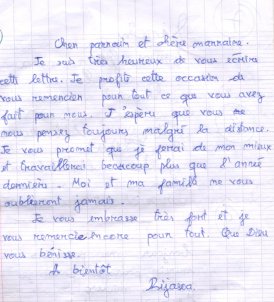 Cher parrain et chère marraine.
Je suis très heureux de vous écrire
cette lettre. Je profite cette occasion de
vous remercier pour tout ce que vous avez
fait pour nous. J'espère que vous
nous pensez toujours malgré la distance.
Je vous promet que je ferai de mon mieux
et travaillerai beaucoup plus que l'année
dernière. Moi et ma famille ne vous
oublieront jamais.
Je vous embrasse très fort et je
vous remercie encore pour tout. Que Dieu
vous bénisse.
A bientôt